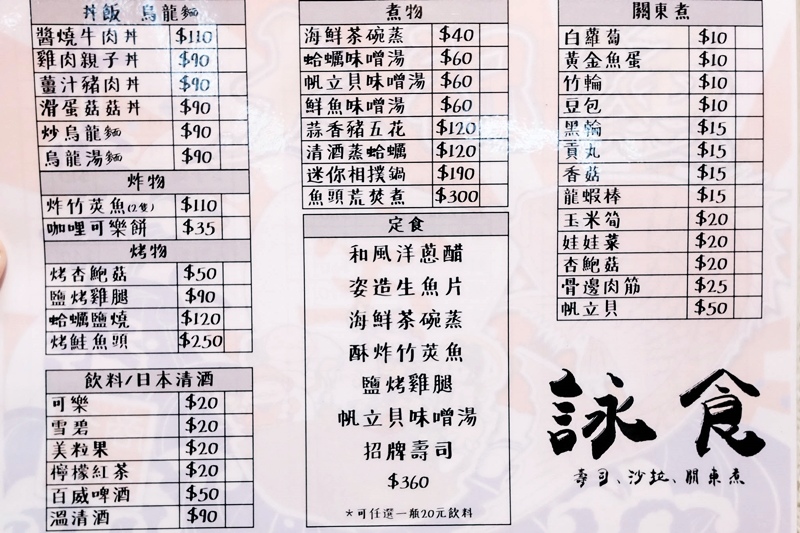 丼飯 烏龍麵
醬燒牛肉丼 $110
雞肉親子丼 $90
薑汁豬肉丼 $90
滑蛋菇菇丼 $90
炒烏龍麵 $90
烏龍湯麵 $90
炸物
炸竹莢魚(2隻) $110
咖哩可樂餅 $35
烤物
烤杏鮑菇 $50
鹽烤雞腿 $90
蛤蠣鹽燒 $120
烤鮭魚頭 $250
飲料/日本清酒
可樂 $20
雪碧 $20
美粒果 $20
檸檬紅茶 $20
百威啤酒 $50
溫清酒 $90
煮物
海鮮茶碗蒸 $40
蛤蠣味噌湯 $60
帆立貝味噌湯 $60
鮮魚味噌湯 $60
蒜香豬五花 $120
清酒蒸蛤蠣 $120
迷你相撲鍋 $190
魚頭荒焚煮 $300
定食
和風洋蔥醋
姿造生魚片
海鮮茶碗蒸
酥炸竹莢魚
鹽烤雞腿
帆立貝味噌湯
招牌壽司
$360
*可任選一瓶20元飲料
關東煮
白蘿蔔 $10
黃金魚蛋 $10
竹輪 $10
豆包 $10
黑輪 $15
貢丸 $15
香菇 $15
龍蝦棒 $15
玉米筍 $20
娃娃菜 $20
杏鮑菇 $20
骨邊肉筋 $25
帆立貝 $50
詠食
壽司、沙拉、關東煮